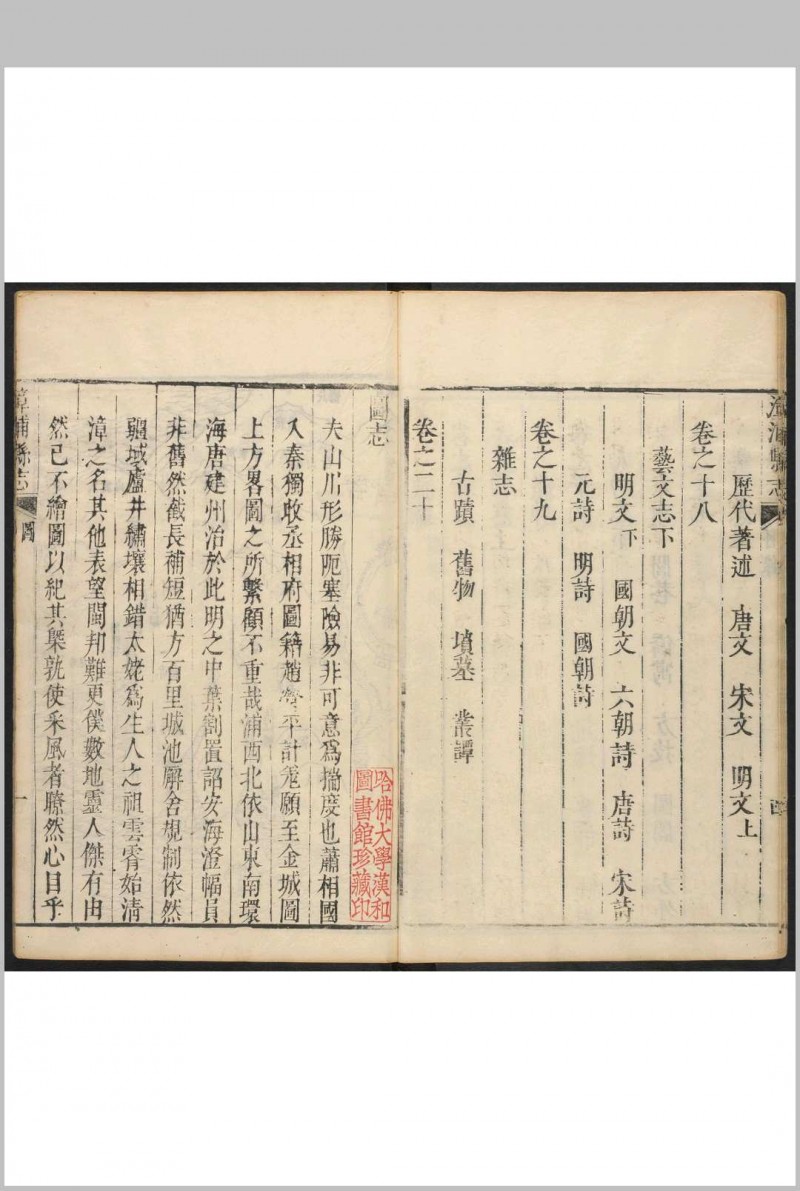 漳浦縣志
歷代著述 唐文 宋文 明文上
卷之十八
藝文志下
明文下 國朝文 六朝詩 唐詩 宋詩
元詩 明詩 國朝詩
卷之十九
雜志
古蹟 舊物 墳墓 叢譚
卷之二十
圖志
哈佛大學漢和
圖書館珍藏印
夫山川形勝阨塞險易非可意爲揣度也蕭相國
入秦獨收丞相府圖籍趙營平計羌願至金城圖
上方畧圖之所繫顧不重哉浦西北依山東南環
海唐建州治於此明之中葉割置詔安海澄幅員
非舊然截長補短猶方百里城池廨舍規制依然
疆域廬井繡壤相錯太姥爲生人之祖雲霄始清
漳之名其他表望閩邦難更僕數地靈人傑有由
然已不繪圖以紀其槩孰使采風者瞭然心目乎
漳浦縣志 圖 一